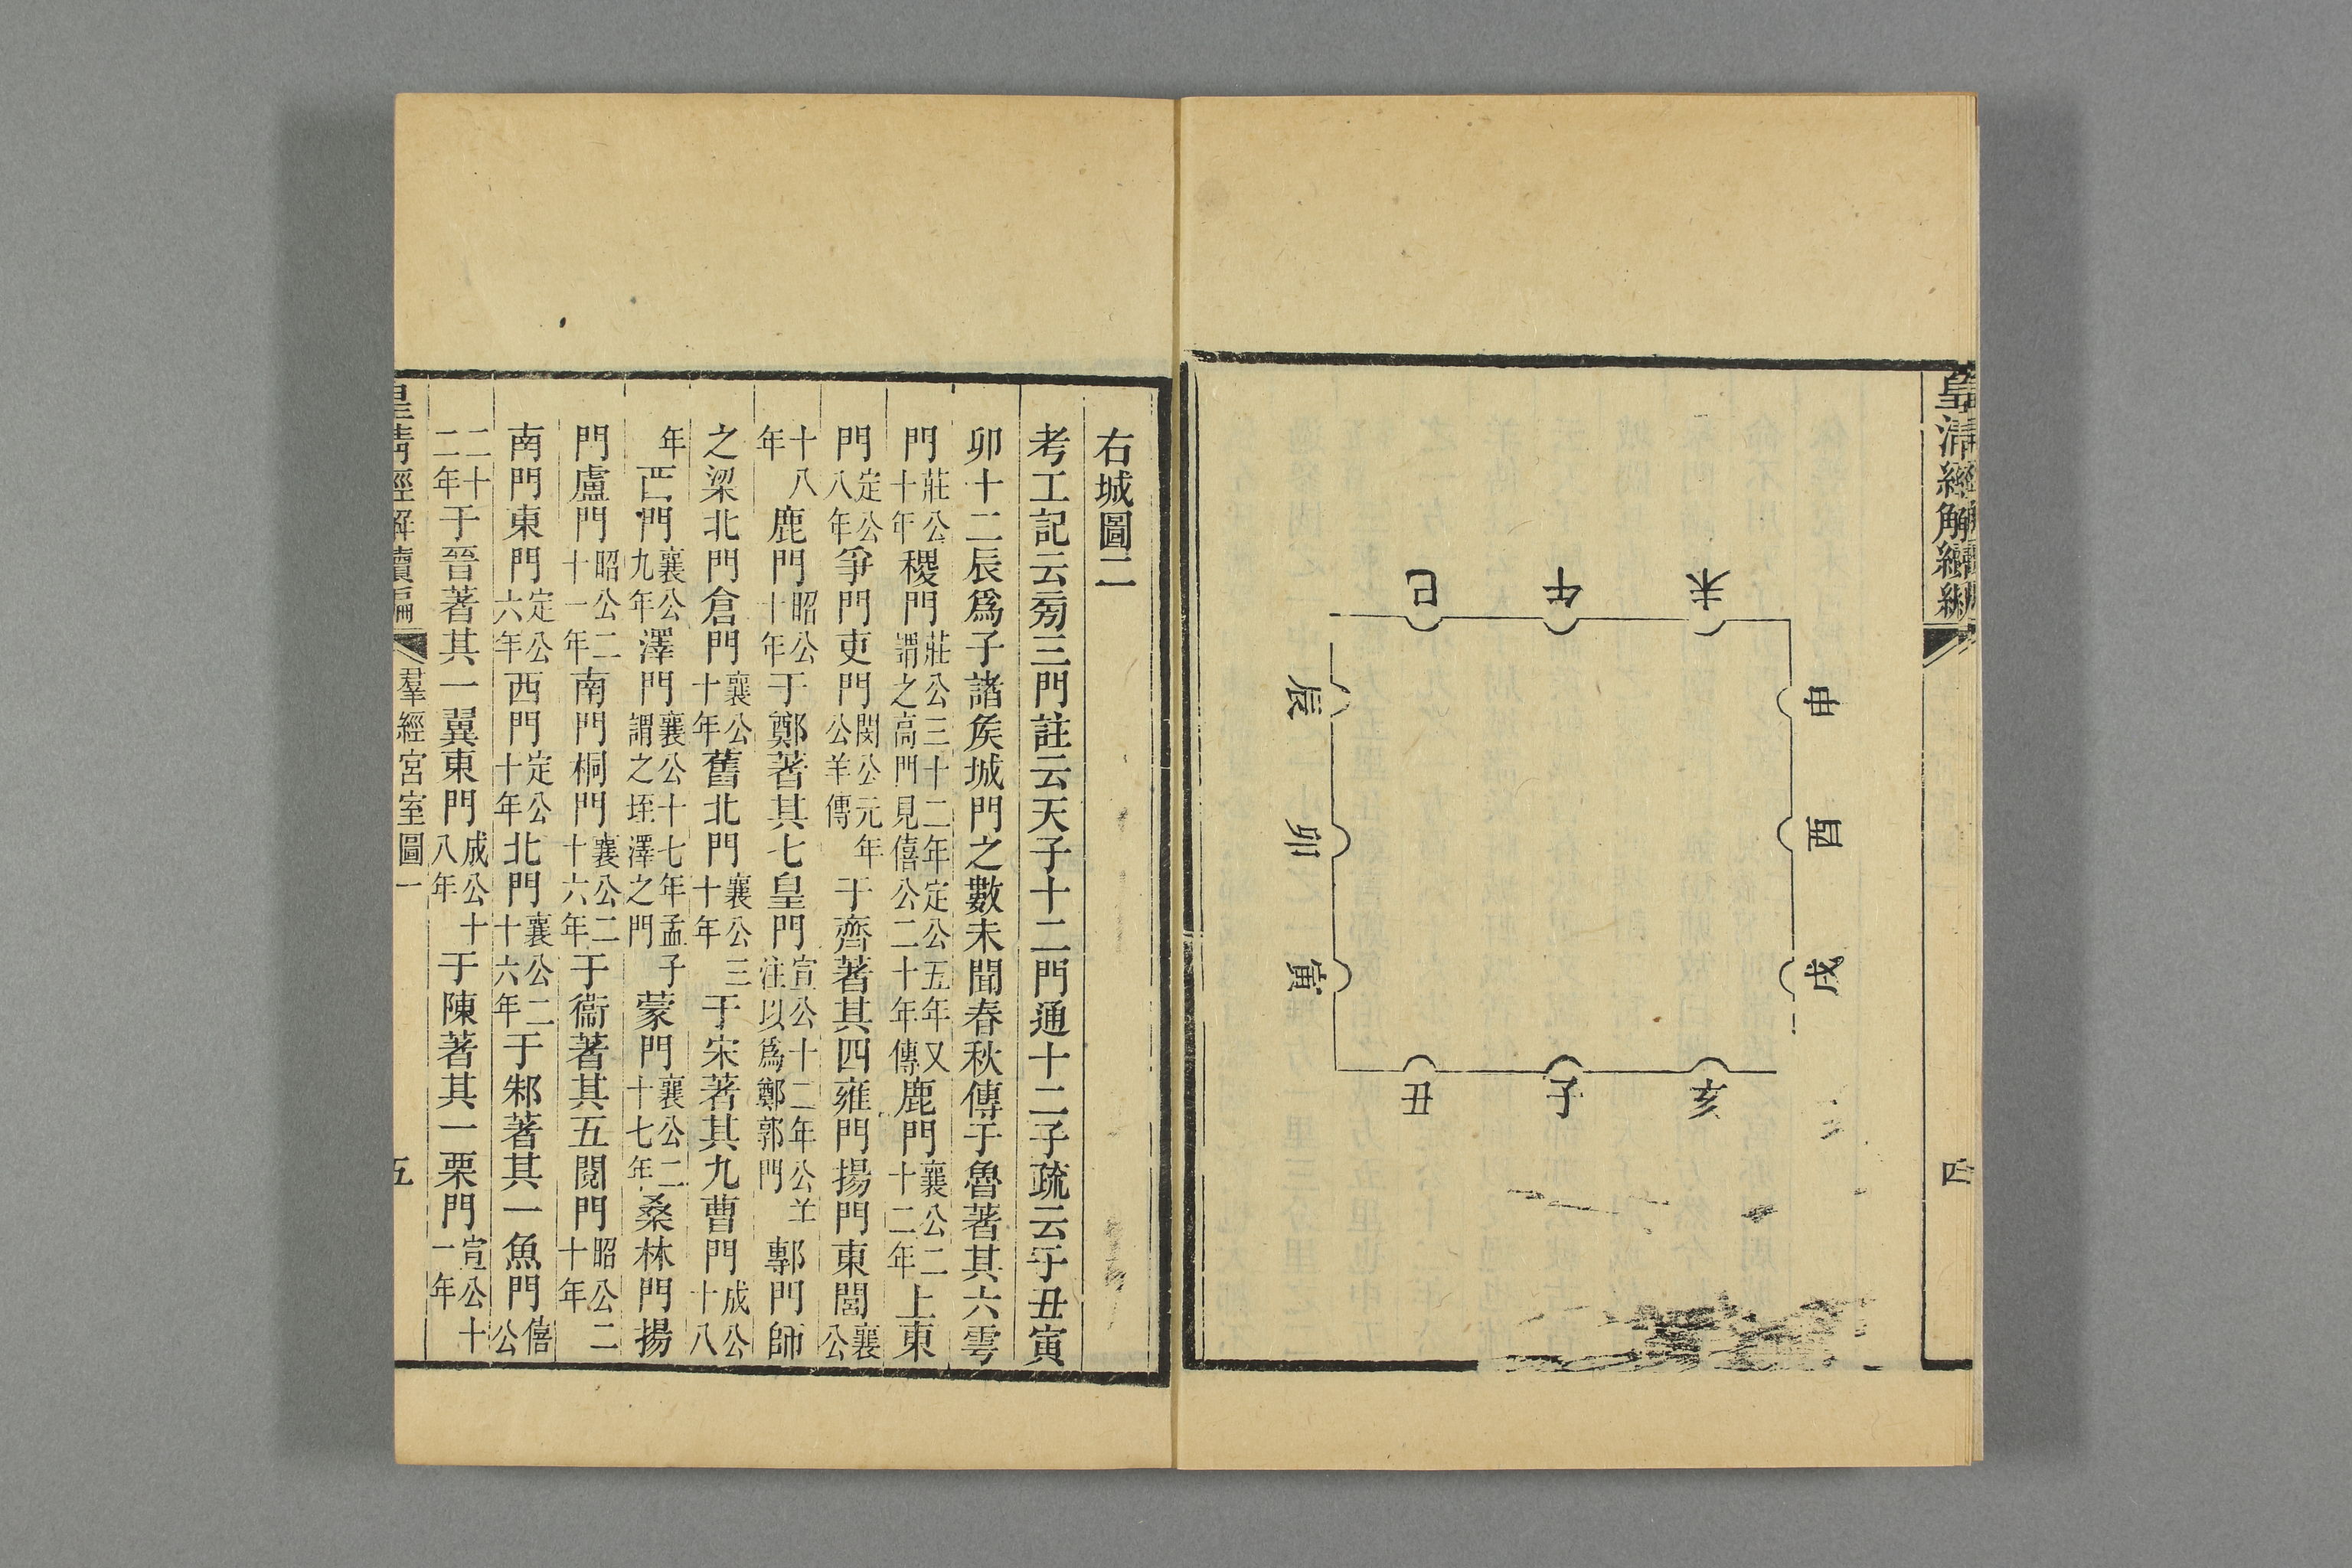 皇清經解續編
四
巳
午
未
申
酉
戌
亥
子
丑
寅
卯
辰
右城圖二
考工記云旁三門註云天子十二門通十二子疏云子丑寅
卯十二辰爲子諸矦城門之數未聞春秋傳于魯著其六雩
門莊公十年稷門莊公三十二年定公五年又謂之高門見僖公二十年傳鹿門襄公二十二年上東
門定公八年爭門吏門閔公元年公羊傳于齊著其四雍門揚門東閭襄公
十八年鹿門昭公十年于鄭著其七皇門宣公十二年公羊注以爲鄭郭門鄟門師
之梁北門倉門襄公十年舊北門襄公三十年于宋著其九曹門成公十八
年𦣝門襄公九年澤門襄公十七年孟子謂之垤澤之門蒙門襄公二十七年桑林門揚
門盧門昭公二十一年南門桐門襄公二十六年于衞著其五閱門昭公二十年
南門東門定公六年西門定公十年北門襄公二十六年于邾著其一魚門僖公
二十二年于晉著其一翼東門成公十八年于陳著其一栗門宣公十一年
皇清經解續編
羣經宮室圖一
五